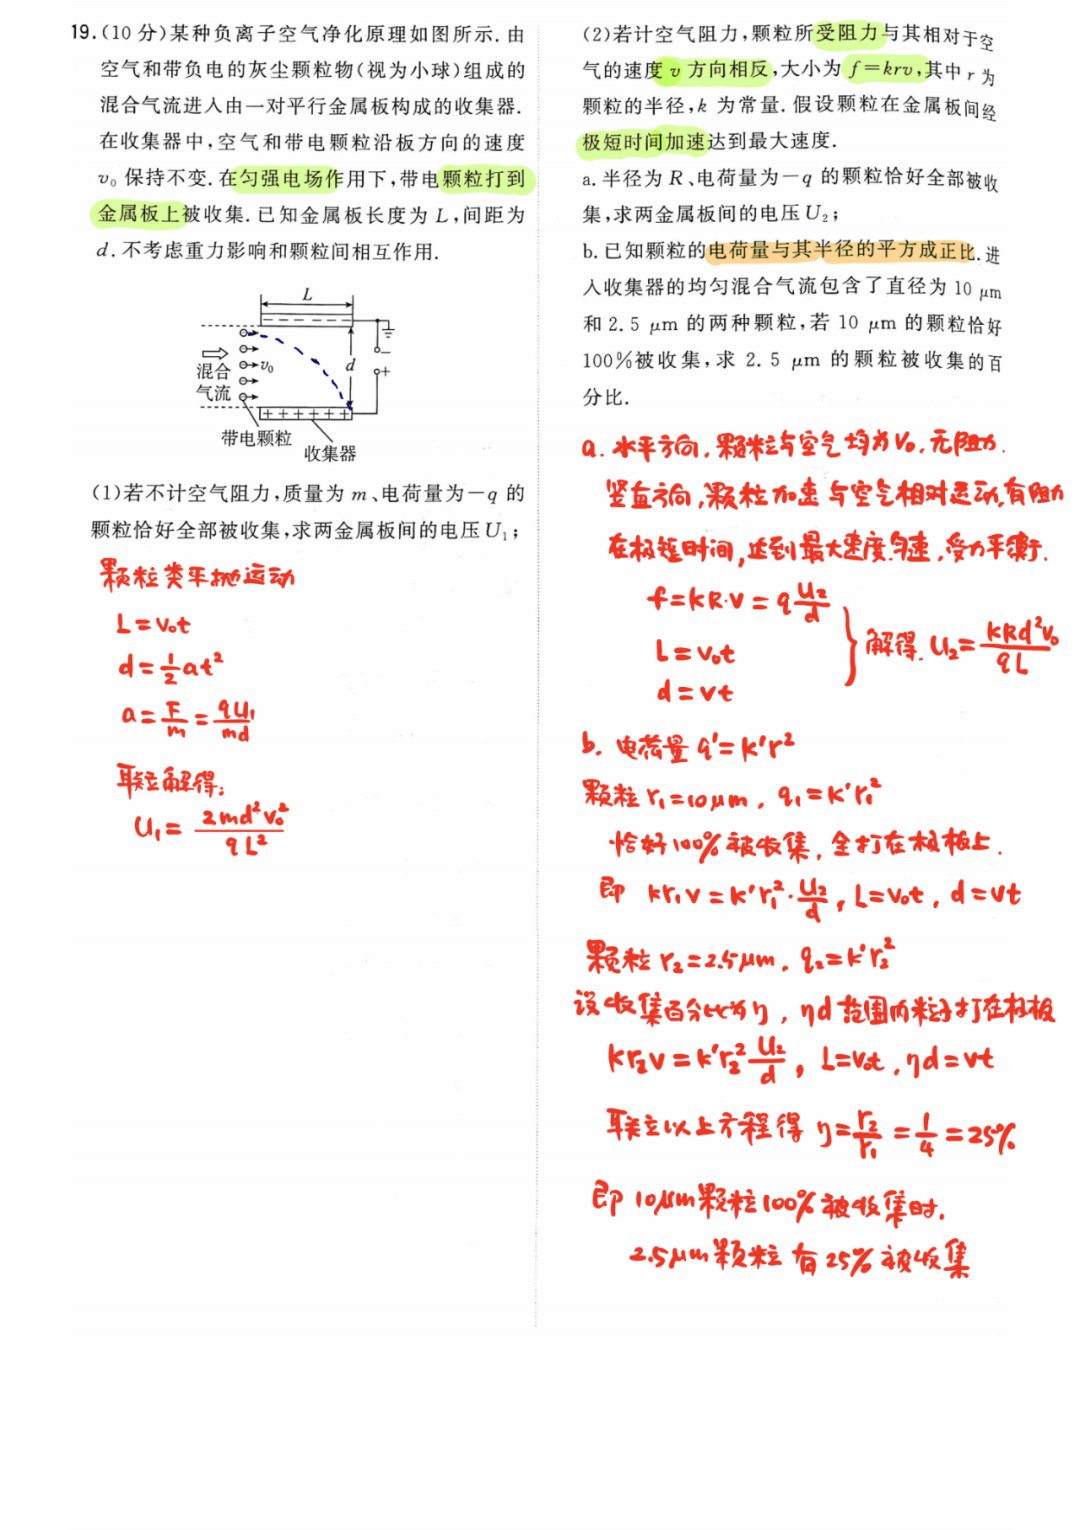 19.(10 分)某种负离子空气净化原理如图所示. 由
空气和带负电的灰尘颗粒物(视为小球)组成的
混合气流进入由一对平行金属板构成的收集器.
在收集器中,空气和带电颗粒沿板方向的速度
v₀ 保持不变. 在匀强电场作用下,带电颗粒打到
金属板上被收集. 已知金属板长度为 L,间距为
d. 不考虑重力影响和颗粒间相互作用.
L
混合
气流
v₀
d
−
+
带电颗粒
收集器
(1)若不计空气阻力,质量为 m、电荷量为－q 的
颗粒恰好全部被收集,求两金属板间的电压 U₁;
颗粒类平抛运动
L=v₀t
d=½at²
a=F/m=qU₁/md
联立解得:
U₁=2md²v₀²/qL²
(2)若计空气阻力,颗粒所受阻力与其相对于空
气的速度 v 方向相反,大小为 f=krv,其中 r 为
颗粒的半径,k 为常量. 假设颗粒在金属板间经
极短时间加速达到最大速度.
a. 半径为 R、电荷量为－q 的颗粒恰好全部被收
集,求两金属板间的电压 U₂;
b. 已知颗粒的电荷量与其半径的平方成正比. 进
入收集器的均匀混合气流包含了直径为 10 μm
和 2.5 μm 的两种颗粒,若 10 μm 的颗粒恰好
100%被收集,求 2.5 μm 的颗粒被收集的百
分比.
a. 水平方向,颗粒与空气均为V₀,无阻力.
竖直方向,颗粒加速与空气相对运动,有阻力
在极短时间,达到最大速度匀速,受力平衡.
f=kR·v=qU₂/d
L=v₀t
d=vt
解得. U₂=kRd²v₀/qL
b. 电荷量 q'=k'r²
颗粒 r₁=10μm, q₁=k'r₁²
恰好100%被收集,全打在极板上.
即 kr₁v=k'r₁²·U₂/d, L=v₀t, d=vt
颗粒 r₂=2.5μm. q₂=k'r₂²
设收集百分比为η, ηd范围内粒子打在极板
kr₂v=k'r₂²U₂/d, L=v₀t, ηd=vt
联立以上方程得 η=r₂/r₁=1/4=25%
即 10μm颗粒100%被收集时.
2.5μm颗粒有25%被收集